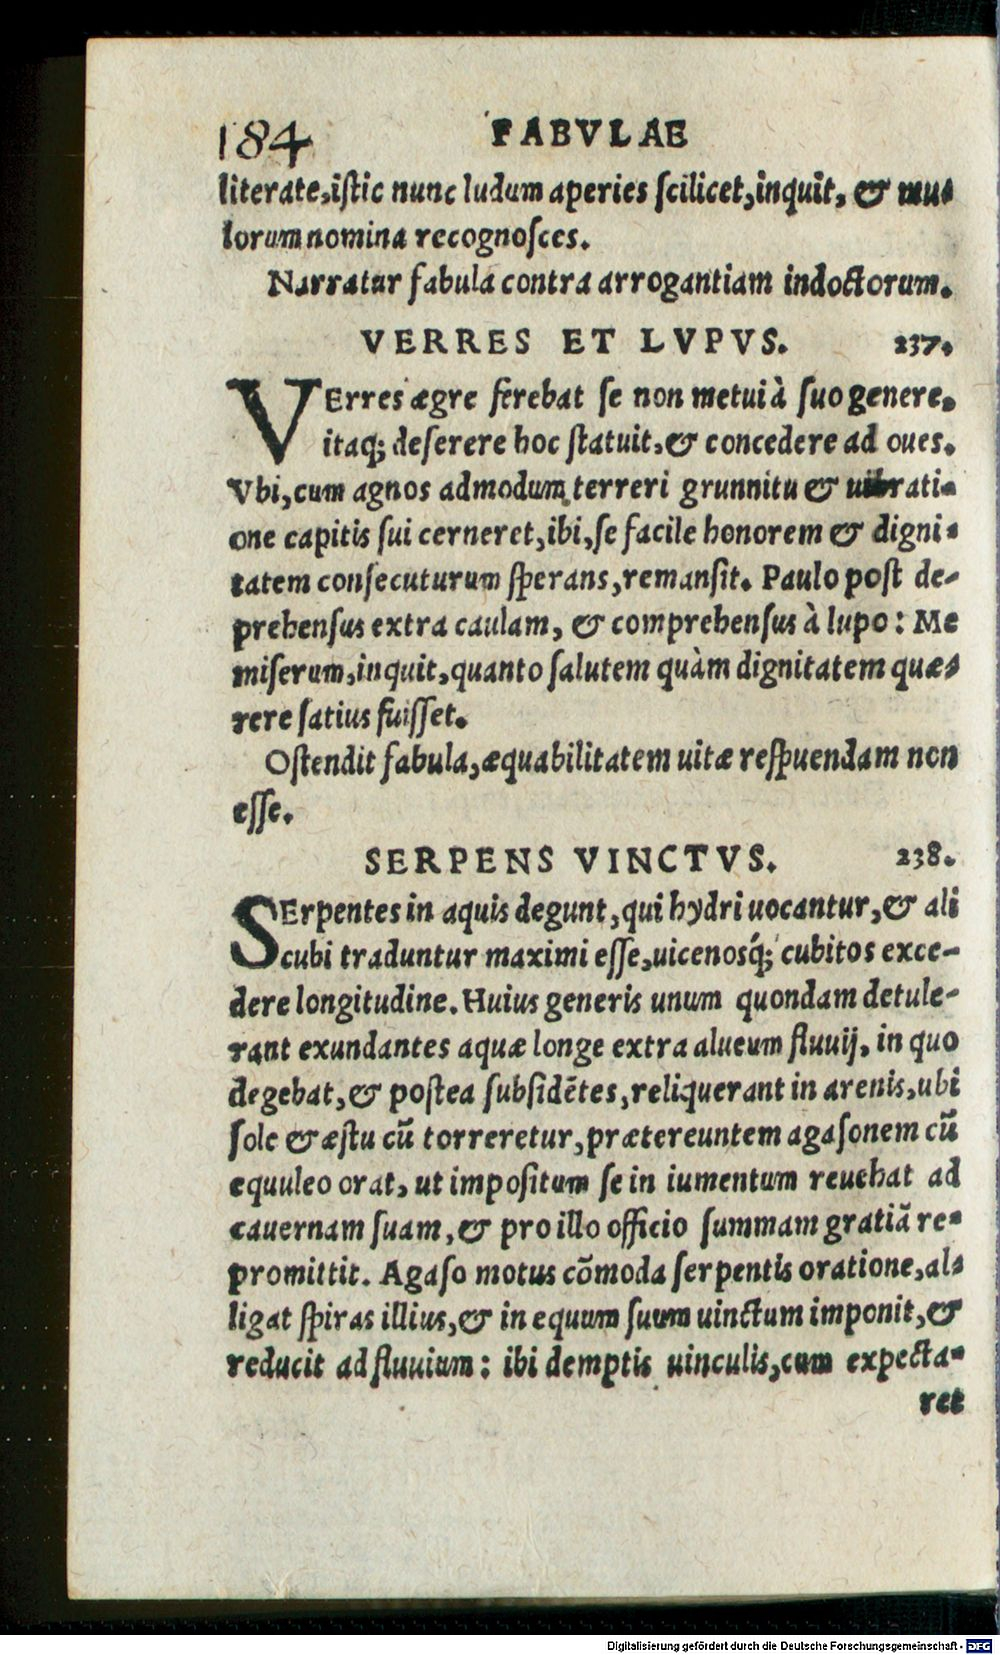 184 FABVLAE
literate, iſtic nunc ludum aperies ſcilicet, inquit, & mu-
lorum nomina recognoſces.
Narratur fabula contra arrogantiam indoctorum.
VERRES ET LVPVS. 237.
VErres ægre ferebat ſe non metui à ſuo genere.
itaq; deſerere hoc ſtatuit, & concedere ad oues.
Vbi, cum agnos admodum terreri grunnitu & uibrati-
one capitis ſui cerneret, ibi, ſe facile honorem & digni-
tatem conſecuturum ſperans, remanſit. Paulo poſt de-
prehenſus extra caulam, & comprehenſus à lupo: Me
miſerum, inquit, quanto ſalutem quàm dignitatem quæ-
rere ſatius fuiſſet.
Oſtendit fabula, æquabilitatem uitæ reſpuendam non
eſſe.
SERPENS VINCTVS. 238.
SErpentes in aquis degunt, qui hydri uocantur, & ali
cubi traduntur maximi eſſe, uicenosq́; cubitos exce-
dere longitudine. Huius generis unum quondam detule-
rant exundantes aquæ longe extra alueum fluuij, in quo
degebat, & poſtea ſubſidẽtes, reliquerant in arenis, ubi
ſole & æſtu cũ torreretur, prætereuntem agaſonem cũ
equuleo orat, ut impoſitum ſe in iumentum reuehat ad
cauernam ſuam, & pro illo officio ſummam gratiã re-
promittit. Agaſo motus cõmoda ſerpentis oratione, al-
ligat ſpiras illius, & in equum ſuum uinctum imponit, &
reducit ad fluuium: ibi demptis uinculis, cum expecta-
ret
Digitalisierung gefördert durch die Deutsche Forschungsgemeinschaft - DFG